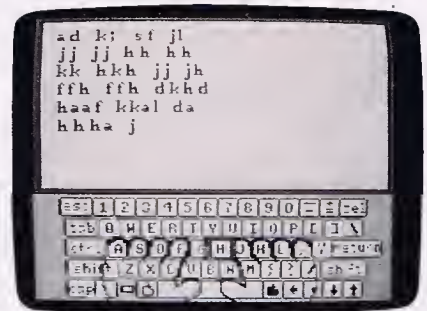 ad k; sf jl
jj jj hh hh
kk hkh jj jh
ffh ffh dkhd
haaf kkal da
hhha j
esc 1 2 3 4 5 6 7 8 9 0 - = del
tab Q W E R T Y U I O P [ ] \
A S D F G H J K L ; ' return
shift Z X C V B N M , . / shift
cap